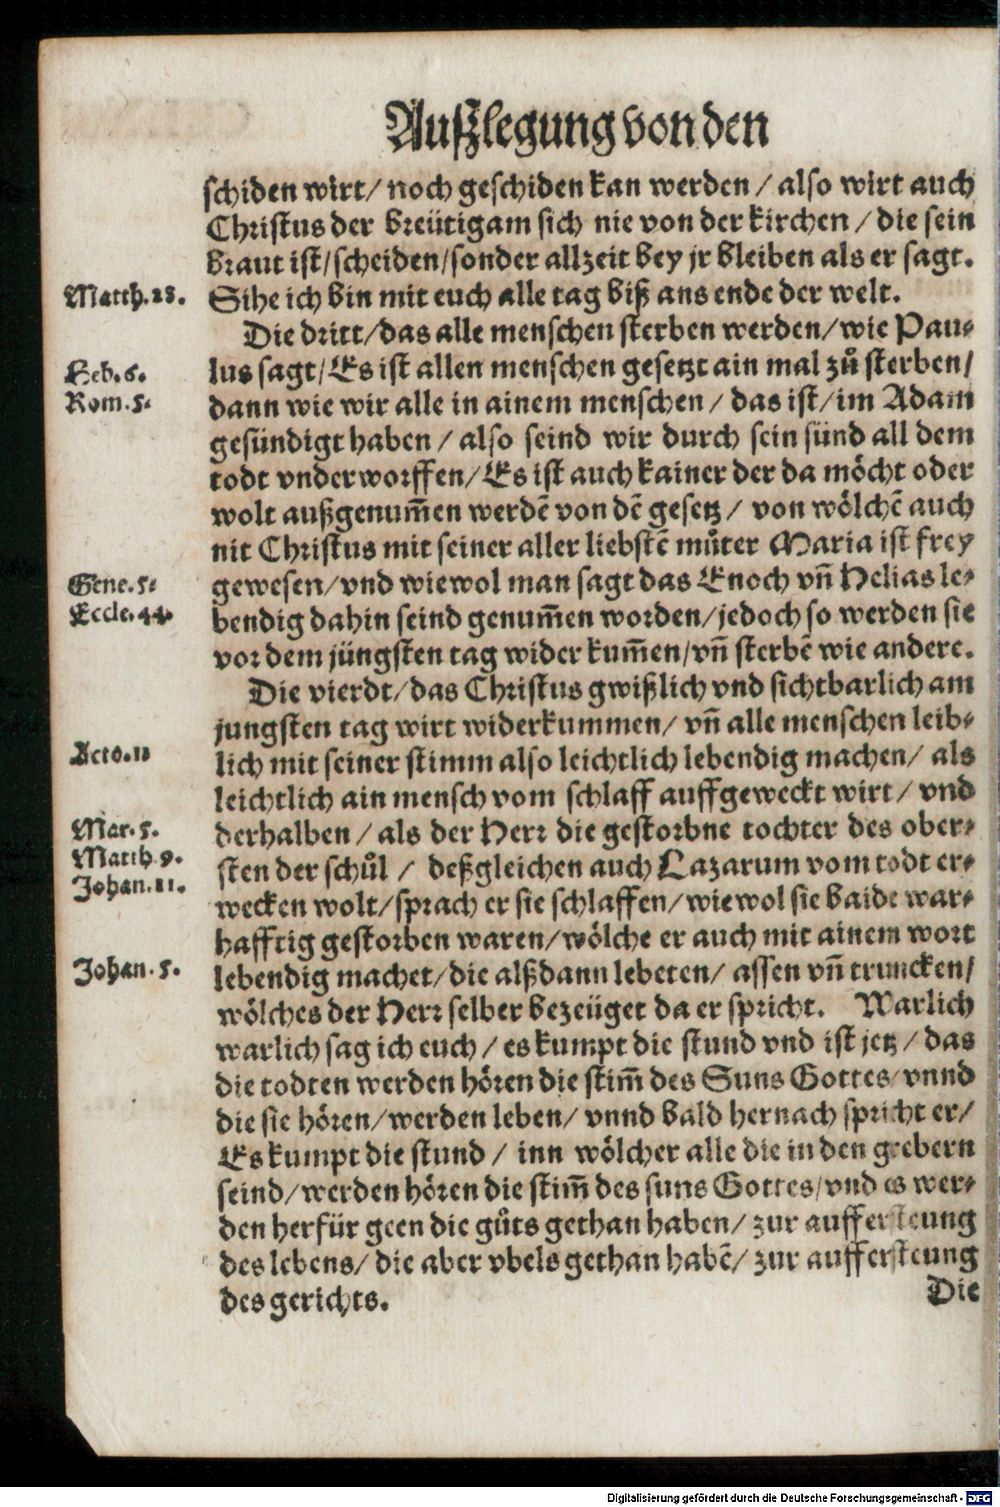 Außlegung von den
schiden wirt/ noch geschiden kan werden / also wirt auch
Christus der breütigam sich nie von der kirchen / die sein
braut ist/scheiden/sonder allzeit bey jr bleiben als er sagt.
Matth.28. Sihe ich bin mit euch alle tag biß ans ende der welt.
Die dritt/das alle menschen sterben werden/wie Pau-
Heb.6. lus sagt/Es ist allen menschen gesetzt ain mal zů sterben/
Rom.5. dann wie wir alle in ainem menschen / das ist/im Adam
gesündigt haben / also seind wir durch sein sünd all dem
todt vnderworffen/Es ist auch kainer der da möcht oder
wolt außgenum̃en werdẽ von dẽ gesetz / von wölchẽ auch
nit Christus mit seiner aller liebstẽ můter Maria ist frey
Gene.5. gewesen/vnd wiewol man sagt das Enoch vñ Helias le-
Eccle.44. bendig dahin seind genum̃en worden/jedoch so werden sie
vor dem jüngsten tag wider kum̃en/vñ sterbẽ wie andere.
Die vierdt/das Christus gwißlich vnd sichtbarlich am
jungsten tag wirt widerkummen/ vñ alle menschen leib-
Acto.11 lich mit seiner stimm also leichtlich lebendig machen/ als
leichtlich ain mensch vom schlaff auffgeweckt wirt/ vnd
Mar.5. derhalben / als der Herr die gestorbne tochter des ober-
Matth 9. sten der schůl / deßgleichen auch Lazarum vom todt er-
Johan.11. wecken wolt/sprach er sie schlaffen/wiewol sie baide war-
hafftig gestorben waren/wölche er auch mit ainem wort
Johan.5. lebendig machet/die alßdann lebeten/ assen vñ truncken/
wölches der Herr selber bezeüget da er spricht. Warlich
warlich sag ich euch / es kumpt die stund vnd ist jetz / das
die todten werden hören die stim̃ des Suns Gottes/vnnd
die sie hören/werden leben/ vnnd bald hernach spricht er/
Es kumpt die stund / inn wölcher alle die in den grebern
seind/werden hören die stim̃ des suns Gottes/vnd es wer-
den herfür geen die gůts gethan haben/ zur auffersteung
des lebens/ die aber vbels gethan habẽ/ zur auffersteung
des gerichts.
Die
Digitalisierung gefördert durch die Deutsche Forschungsgemeinschaft - DFG